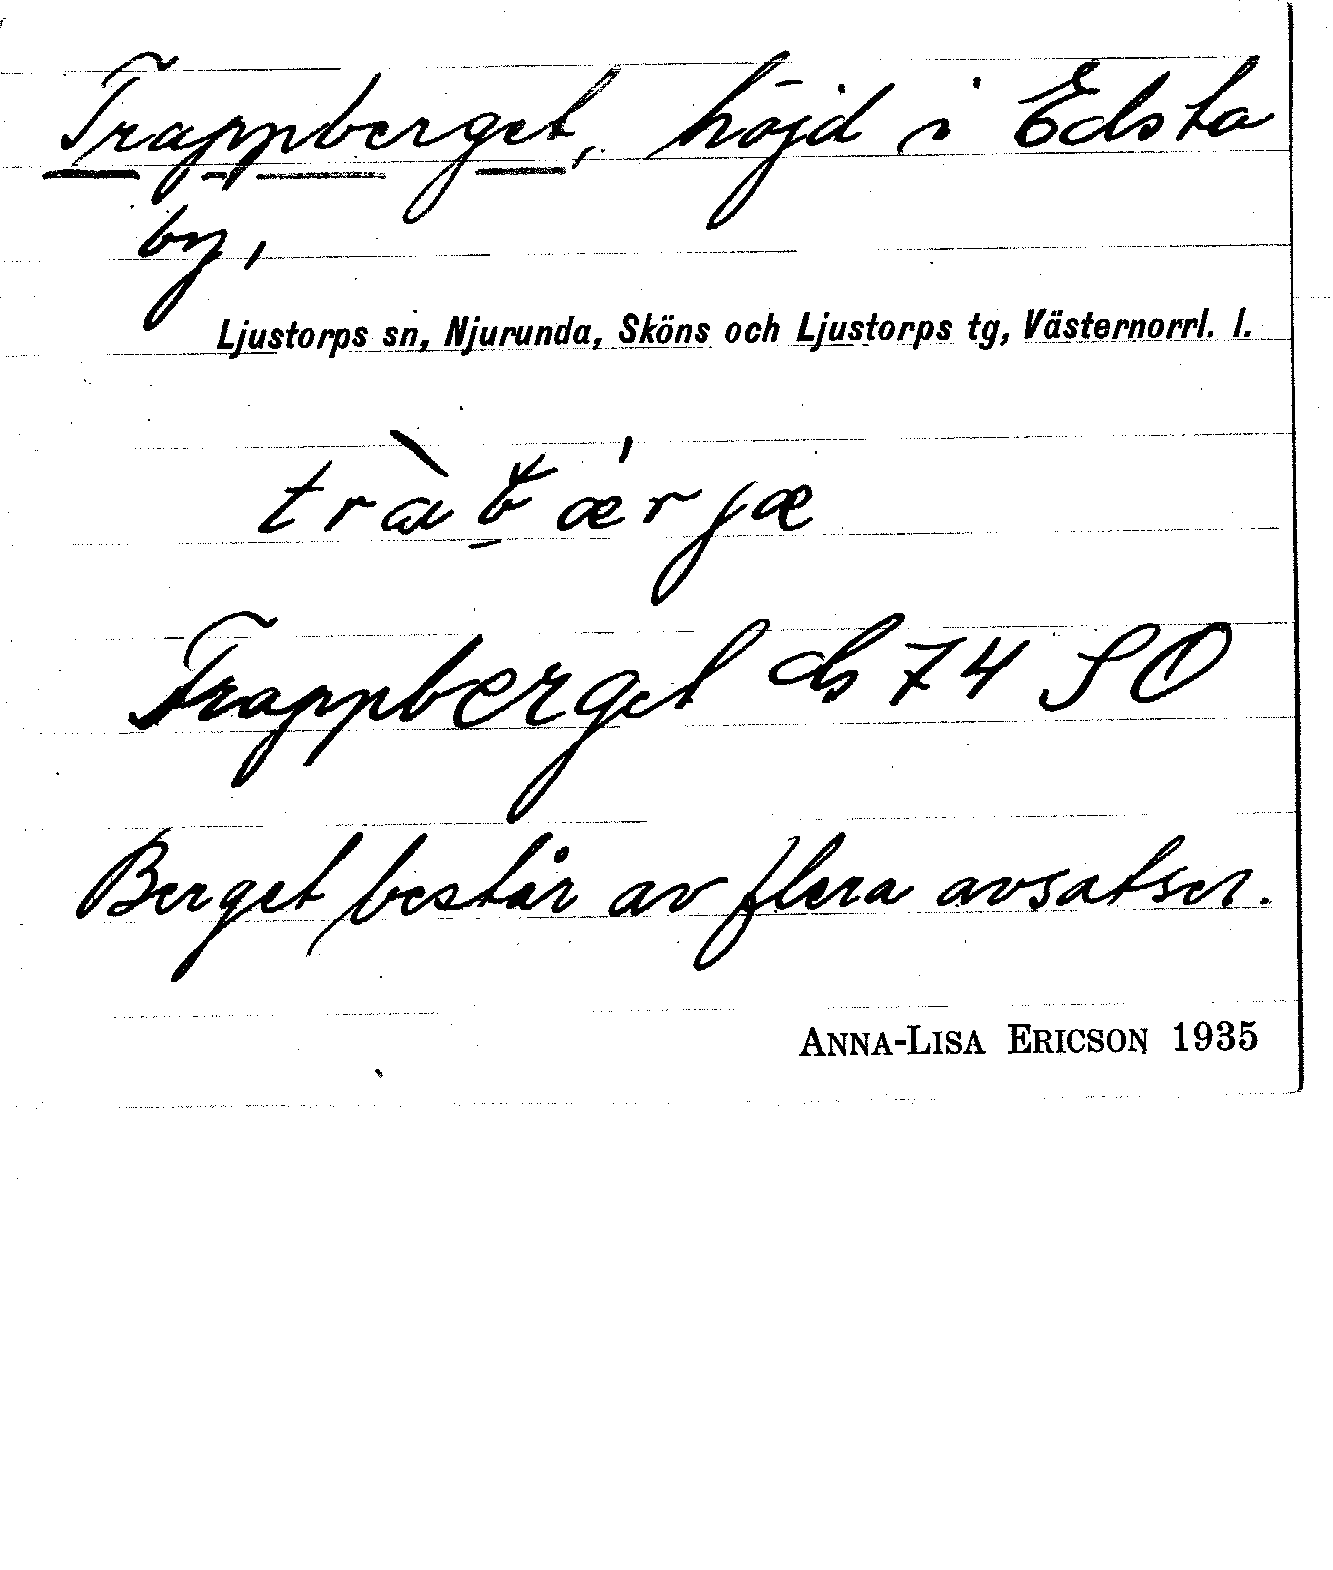 Trappberget, höjd i Edsta
by,
Ljustorps sn, Njurunda, Sköns och Ljustorps tg, Västernorrl. l.
Trappberget ds 74 SO
Berget består av flera avsatser.
ANNA-LISA ERICSON 1935